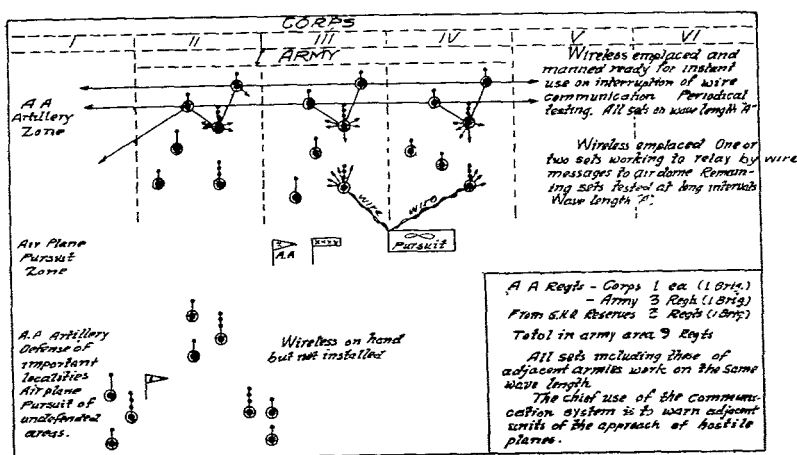 CORPS
I II III IV V VI
ARMY
A A
Artillery
Zone
Wireless emplaced and
manned ready for instant
use on interruption of wire
communication Periodical
testing. All sets on wave length "A"
Wireless emplaced One or
two sets working to relay by wire
messages to airdome Remain-
ing sets tested at long intervals
Wave length "A".
WIRE
WIRE
Pursuit
Air Plane
Pursuit
Zone
A.A
XXXX
A.A Artillery
Defense of
important
localities
Airplane
Pursuit of
undefended
areas.
Wireless on hand
but not installed
A A Regts - Corps 1 ea (1 Brig.)
- Army 3 Regts (1 Brig)
From G.H.Q Reserves 2 Regts (1 Brig)
Total in army area 9 Regts
All sets including these of
adjacent armies work on the same
wave length
The chief use of the communi-
cation system is to warn adjacent
units of the approach of hostile
planes.